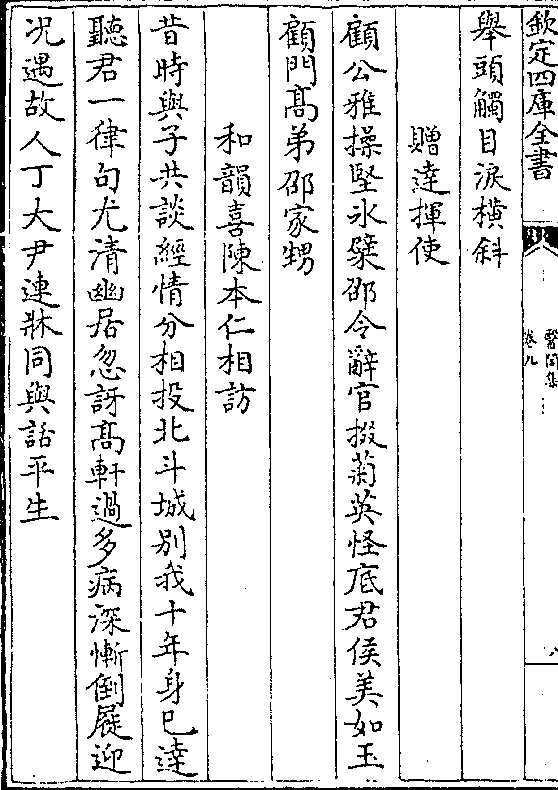 欽定四庫全書
醫閭集
卷九
八
舉頭觸目淚橫斜
贈達揮使
顧公雅操堅氷檗邵令辭官掇菊英怪底君侯美如玉
顧門髙弟邵家甥
和韻喜陳本仁相訪
昔時與子共談經情分相投北斗城别我十年身已達
聽君一律句尤清幽居忽訝髙軒過多病深慚倒屣迎
况遇故人丁大尹連牀同與話平生